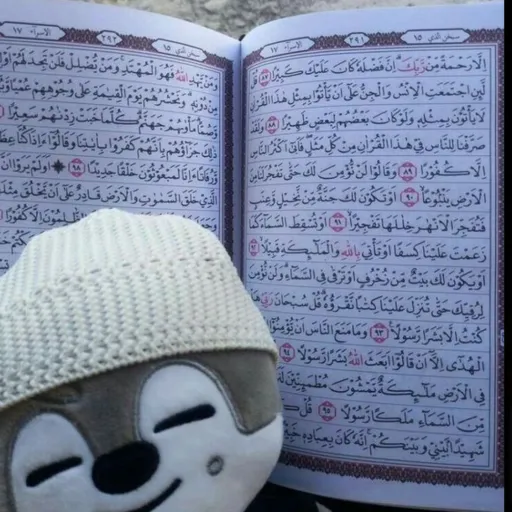 ١٥ سبحن الذي
٢٩١
الاسراء ١٧
اِلّا رَحمَةً مِن رَبِّكَ اِنَّ فَضلَهُ كانَ عَلَيكَ كَبيرًا ﴿٨٧﴾ قُل
لَئِنِ اجتَمَعَتِ الاِنسُ وَالجِنُّ عَلى اَن يَأتوا بِمِثلِ هذَا القُرآنِ
لا يَأتونَ بِمِثلِهِ وَلَو كانَ بَعضُهُم لِبَعضٍ ظَهيرًا ﴿٨٨﴾ وَلَقَد
صَرَّفنا لِلنّاسِ في هذَا القُرآنِ مِن كُلِّ مَثَلٍ فَاَبى اَكثَرُ النّاسِ
اِلّا كُفورًا ﴿٨٩﴾ وَقالوا لَن نُؤمِنَ لَكَ حَتّى تَفجُرَ لَنا مِنَ
الاَرضِ يَنبوعًا ﴿٩٠﴾ اَو تَكونَ لَكَ جَنَّةٌ مِن نَخيلٍ وَعِنَبٍ
فَتُفَجِّرَ الاَنهارَ خِلالَها تَفجيرًا ﴿٩١﴾ اَو تُسقِطَ السَّماءَ كَما
زَعَمتَ عَلَينا كِسَفًا اَو تَأتِيَ بِاللهِ وَالمَلائِكَةِ قَبيلًا ﴿٩٢﴾
اَو يَكونَ لَكَ بَيتٌ مِن زُخرُفٍ اَو تَرقى فِي السَّماءِ وَلَن نُؤمِنَ
لِرُقِيِّكَ حَتّى تُنَزِّلَ عَلَينا كِتابًا نَقرَؤُهُ قُل سُبحانَ رَبّي هَل
كُنتُ اِلّا بَشَرًا رَسولًا ﴿٩٣﴾ وَما مَنَعَ النّاسَ اَن يُؤمِنوا
الهُدى اِلّا اَن قالوا اَبَعَثَ اللهُ بَشَرًا رَسولًا ﴿٩٤﴾
فِي الاَرضِ مَلائِكَةٌ يَمشونَ مُطمَئِنّينَ
مِنَ السَّماءِ مَلَكًا رَسولًا ﴿٩٥﴾ قُل
شَهيدًا بَيني وَبَينَكُم اِنَّهُ كانَ بِعِبادِهِ
١٥ سبحن الذي
٢٩٢
الاسراء ١٧
وَمَن يَهدِ اللهُ فَهُوَ المُهتَدِ وَمَن يُضلِل فَلَن تَجِدَ لَهُم
مِن دونِهِ وَنَحشُرُهُم يَومَ القِيمَةِ عَلى وُجوهِهِم عُميًا
وَصُمًّا مَأواهُم جَهَنَّمُ كُلَّما خَبَت زِدناهُم سَعيرًا
ذلِكَ جَزاؤُهُم بِاَنَّهُم كَفَروا بِآياتِنا وَقالوا ءَاِذا كُنّا
وَرُفاتًا ءَاِنّا لَمَبعوثونَ خَلقًا جَديدًا ﴿٩٨﴾ اَوَلَم يَرَوا اَنَّ
الَّذي خَلَقَ السَّمواتِ وَالاَرضَ قادِرٌ عَلى اَن يَخلُقَ مِثلَهُم
الظّالِمونَ اِلّا كُفورًا